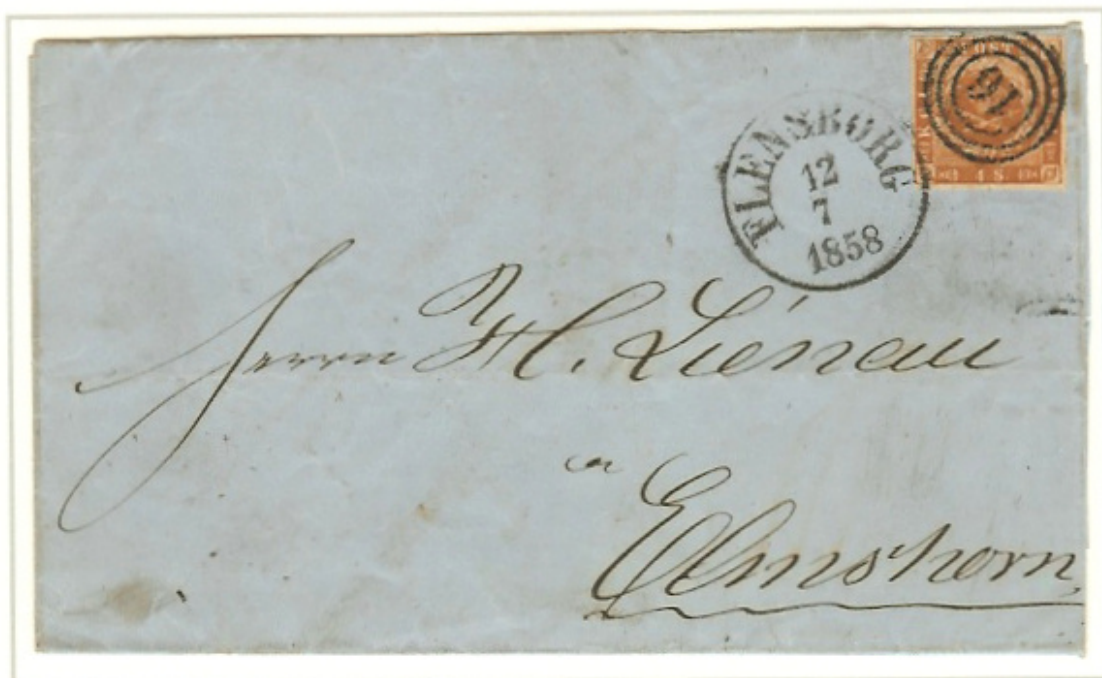 POST
16
4 S
FLENSBORG
12
7
1858
Herrn H. Liénau
in
Elmshorn